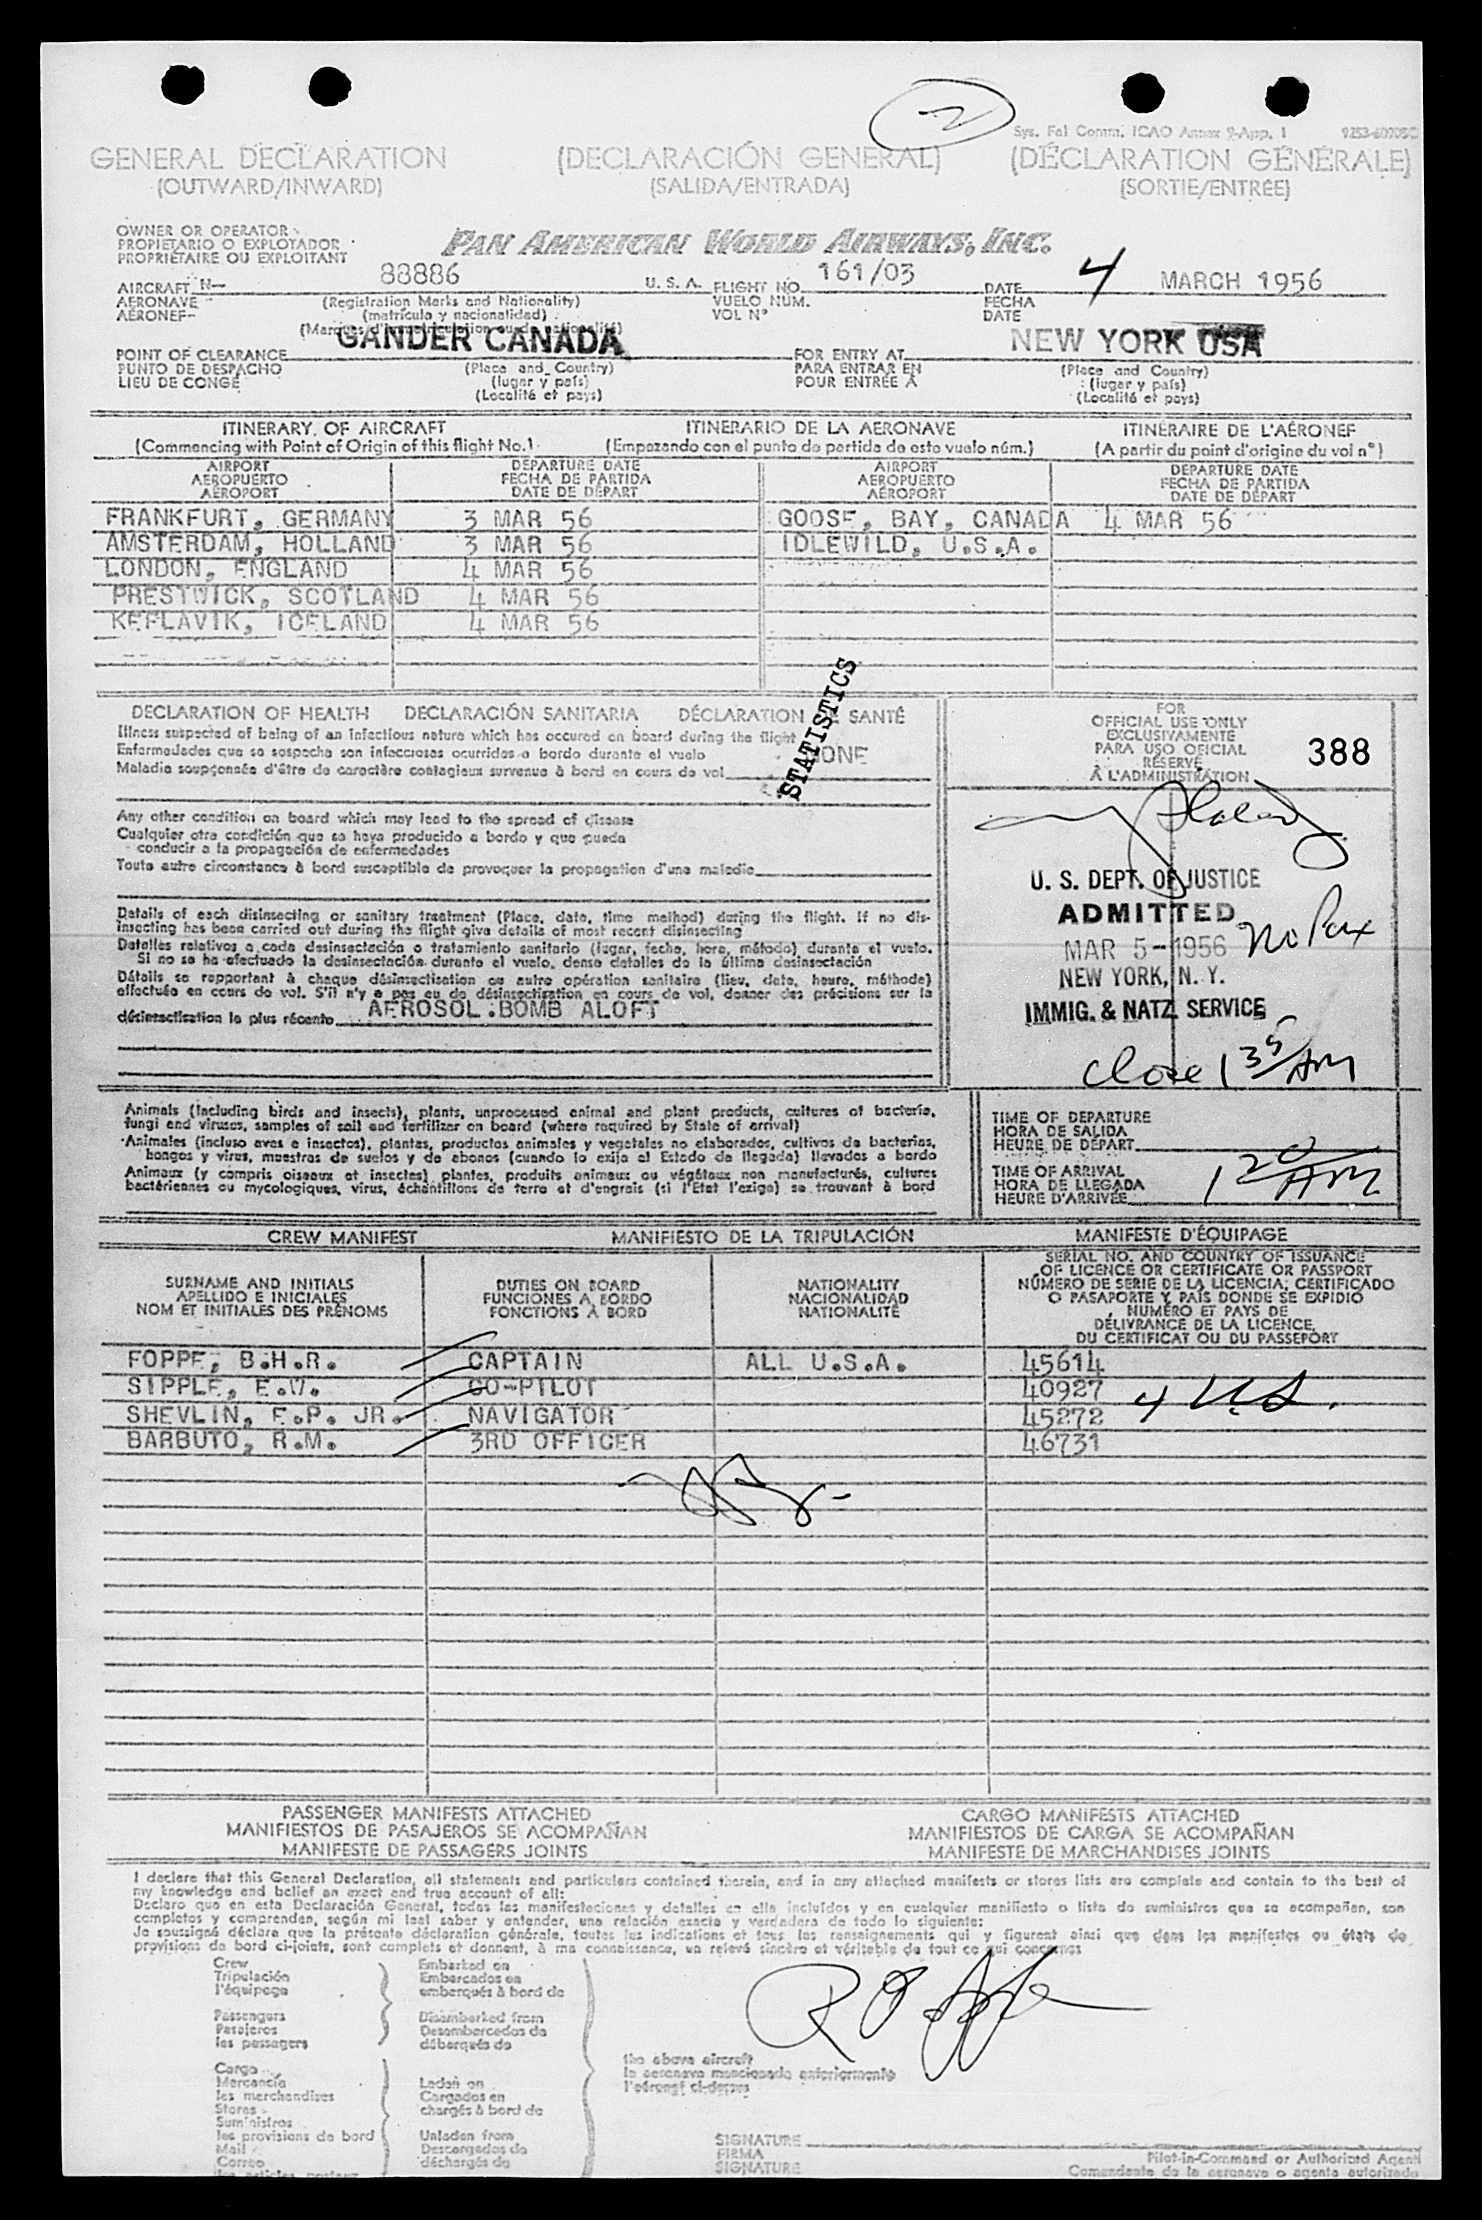 2
Sys. Fal Comm. ICAO Annex 9-App. 1
GENERAL DECLARATION (DECLARACIÓN GENERAL) (DÉCLARATION GÉNÉRALE)
(OUTWARD/INWARD) (SALIDA/ENTRADA) (SORTIE/ENTRÉE)
OWNER OR OPERATOR
PROPIETARIO O EXPLOTADOR
PROPRIÉTAIRE OU EXPLOITANT
PAN AMERICAN WORLD AIRWAYS, INC.
AIRCRAFT N- 88886 U. S. A. FLIGHT NO. 161/03 DATE 4 MARCH 1956
AERONAVE (Registration Marks and Nationality) VUELO NÚM. FECHA
AÉRONEF (matrícula y nacionalidad) VOL Nº DATE
GANDER CANADA NEW YORK USA
POINT OF CLEARANCE FOR ENTRY AT
PUNTO DE DESPACHO (Place and Country) PARA ENTRAR EN (Place and Country)
LIEU DE CONGÉ (lugar y país) POUR ENTRÉE À (lugar y país)
(Localité et pays) (Localité et pays)
ITINERARY OF AIRCRAFT ITINERARIO DE LA AERONAVE ITINÉRAIRE DE L'AÉRONEF
(Commencing with Point of Origin of this flight No.) (Empezando con el punto de partida de esto vuelo núm.) (A partir du point d'origine du vol nº)
AIRPORT DEPARTURE DATE AIRPORT DEPARTURE DATE
AEROPUERTO FECHA DE PARTIDA AEROPUERTO FECHA DE PARTIDA
AÉROPORT DATE DE DÉPART AÉROPORT DATE DE DÉPART
FRANKFURT, GERMANY 3 MAR 56 GOOSE, BAY, CANADA 4 MAR 56
AMSTERDAM, HOLLAND 3 MAR 56 IDLEWILD, U.S.A.
LONDON, ENGLAND 4 MAR 56
PRESTWICK, SCOTLAND 4 MAR 56
KEFLAVIK, ICELAND 4 MAR 56
STATISTICS
DECLARATION OF HEALTH DECLARACIÓN SANITARIA DÉCLARATION DE SANTÉ
Illness suspected of being of an infectious nature which has occured on board during the flight
Enfermedades que se sospecha son infecciosas ocurridas a bordo durante el vuelo NONE
Maladie soupçonnée d'être de caractère contagieux survenue à bord en cours de vol
Any other condition on board which may lead to the spread of disease
Cualquier otra condición que se haya producido a bordo y que pueda
conducir a la propagación de enfermedades
Toute autre circonstance à bord susceptible de provoquer la propagation d'une maladie
Details of each disinsecting or sanitary treatment (Place, date, time method) during the flight. If no dis-
insecting has been carried out during the flight give details of most recent disinsecting
Detalles relativos a cada desinsectación o tratamiento sanitario (lugar, fecha, hora, método) durante el vuelo.
Si no se ha efectuado la desinsectación durante el vuelo, dense detalles de la última desinsectación
Détails se rapportant à chaque désinsectisation ou autre opération sanitaire (lieu, date, heure, méthode)
effectuée en cours de vol. S'il n'y a pas eu de désinsectisation en cours de vol, donner des précisions sur la
désinsectisation la plus récente AEROSOL BOMB ALOFT
FOR
OFFICIAL USE ONLY
EXCLUSIVAMENTE
PARA USO OFICIAL
RÉSERVÉ
À L'ADMINISTRATION
388
U. S. DEPT. OF JUSTICE
ADMITTED
MAR 5-1956 no Pax
NEW YORK, N. Y.
IMMIG. & NATZ. SERVICE
Close 1 35 AM
Animals (including birds and insects), plants, unprocessed animal and plant products, cultures of bacteria,
fungi and viruses, samples of soil and fertilizer on board (where required by State of arrival)
Animales (incluso aves e insectos), plantas, productos animales y vegetales no elaborados, cultivos de bacterias,
hongos y virus, muestras de suelos y de abonos (cuando lo exija el Estado de llegada) llevados a bordo
Animaux (y compris oiseaux et insectes) plantes, produits animaux ou végétaux non manufacturés, cultures
bactériennes ou mycologiques, virus, échantillons de terre et d'engrais (si l'Etat l'exige) se trouvant à bord
TIME OF DEPARTURE
HORA DE SALIDA
HEURE DE DÉPART
TIME OF ARRIVAL
HORA DE LLEGADA
HEURE D'ARRIVÉE
1 20 AM
CREW MANIFEST MANIFIESTO DE LA TRIPULACIÓN MANIFESTE D'ÉQUIPAGE
SURNAME AND INITIALS
APELLIDO E INICIALES
NOM ET INITIALES DES PRÉNOMS
DUTIES ON BOARD
FUNCIONES A BORDO
FONCTIONS À BORD
NATIONALITY
NACIONALIDAD
NATIONALITÉ
SERIAL NO. AND COUNTRY OF ISSUANCE
OF LICENCE OR CERTIFICATE OR PASSPORT
NÚMERO DE SERIE DE LA LICENCIA, CERTIFICADO
O PASAPORTE Y PAÍS DONDE SE EXPIDIÓ
NUMÉRO ET PAYS DE
DÉLIVRANCE DE LA LICENCE,
DU CERTIFICAT OU DU PASSEPORT
FOPPE, B.H.R. CAPTAIN ALL U.S.A. 45614
SIPPLE, E.W. CO-PILOT 40927
SHEVLIN, F.P. JR. NAVIGATOR 45272
BARBUTO, R.M. 3RD OFFICER 46731
4 U.S.
PASSENGER MANIFESTS ATTACHED CARGO MANIFESTS ATTACHED
MANIFIESTOS DE PASAJEROS SE ACOMPAÑAN MANIFIESTOS DE CARGA SE ACOMPAÑAN
MANIFESTE DE PASSAGERS JOINTS MANIFESTE DE MARCHANDISES JOINTS
I declare that this General Declaration, all statements and particulars contained therein, and in any attached manifests or stores lists are complete and contain to the best of
my knowledge and belief an exact and true account of all:
Declaro que en esta Declaración General, todas las manifestaciones y detalles en ella incluídos y en cualquier manifiesto o lista de suministros que se acompañan, son
completos y comprenden, según mi leal saber y entender, una relación exacta y verdadera de todo lo siguiente:
Je soussigné déclare que la présente déclaration générale, toutes les indications et tous les renseignements qui y figurent ainsi que dans les manifestes ou états de
provisions de bord ci-joints, sont complets et donnent, à ma connaissance, un relevé sincère et véritable de tout ce qui concerne:
Crew Embarked on
Tripulación Embarcados en
l'équipage embarqués à bord de
Passengers Disembarked from
Pasajeros Desembarcados de
les passagers débarqués de
the above aircraft
la aeronave mencionada anteriormente
l'aéronef ci-dessus
Cargo
Mercancía Laden on
les marchandises Cargados en
Stores chargés à bord de
Suministros
les provisions de bord Unladen from
Mail Descargados de
Correo déchargés de
SIGNATURE
FIRMA
SIGNATURE
Pilot-in-Command or Authorized Agent
Comandante de la aeronave o agente autorizado